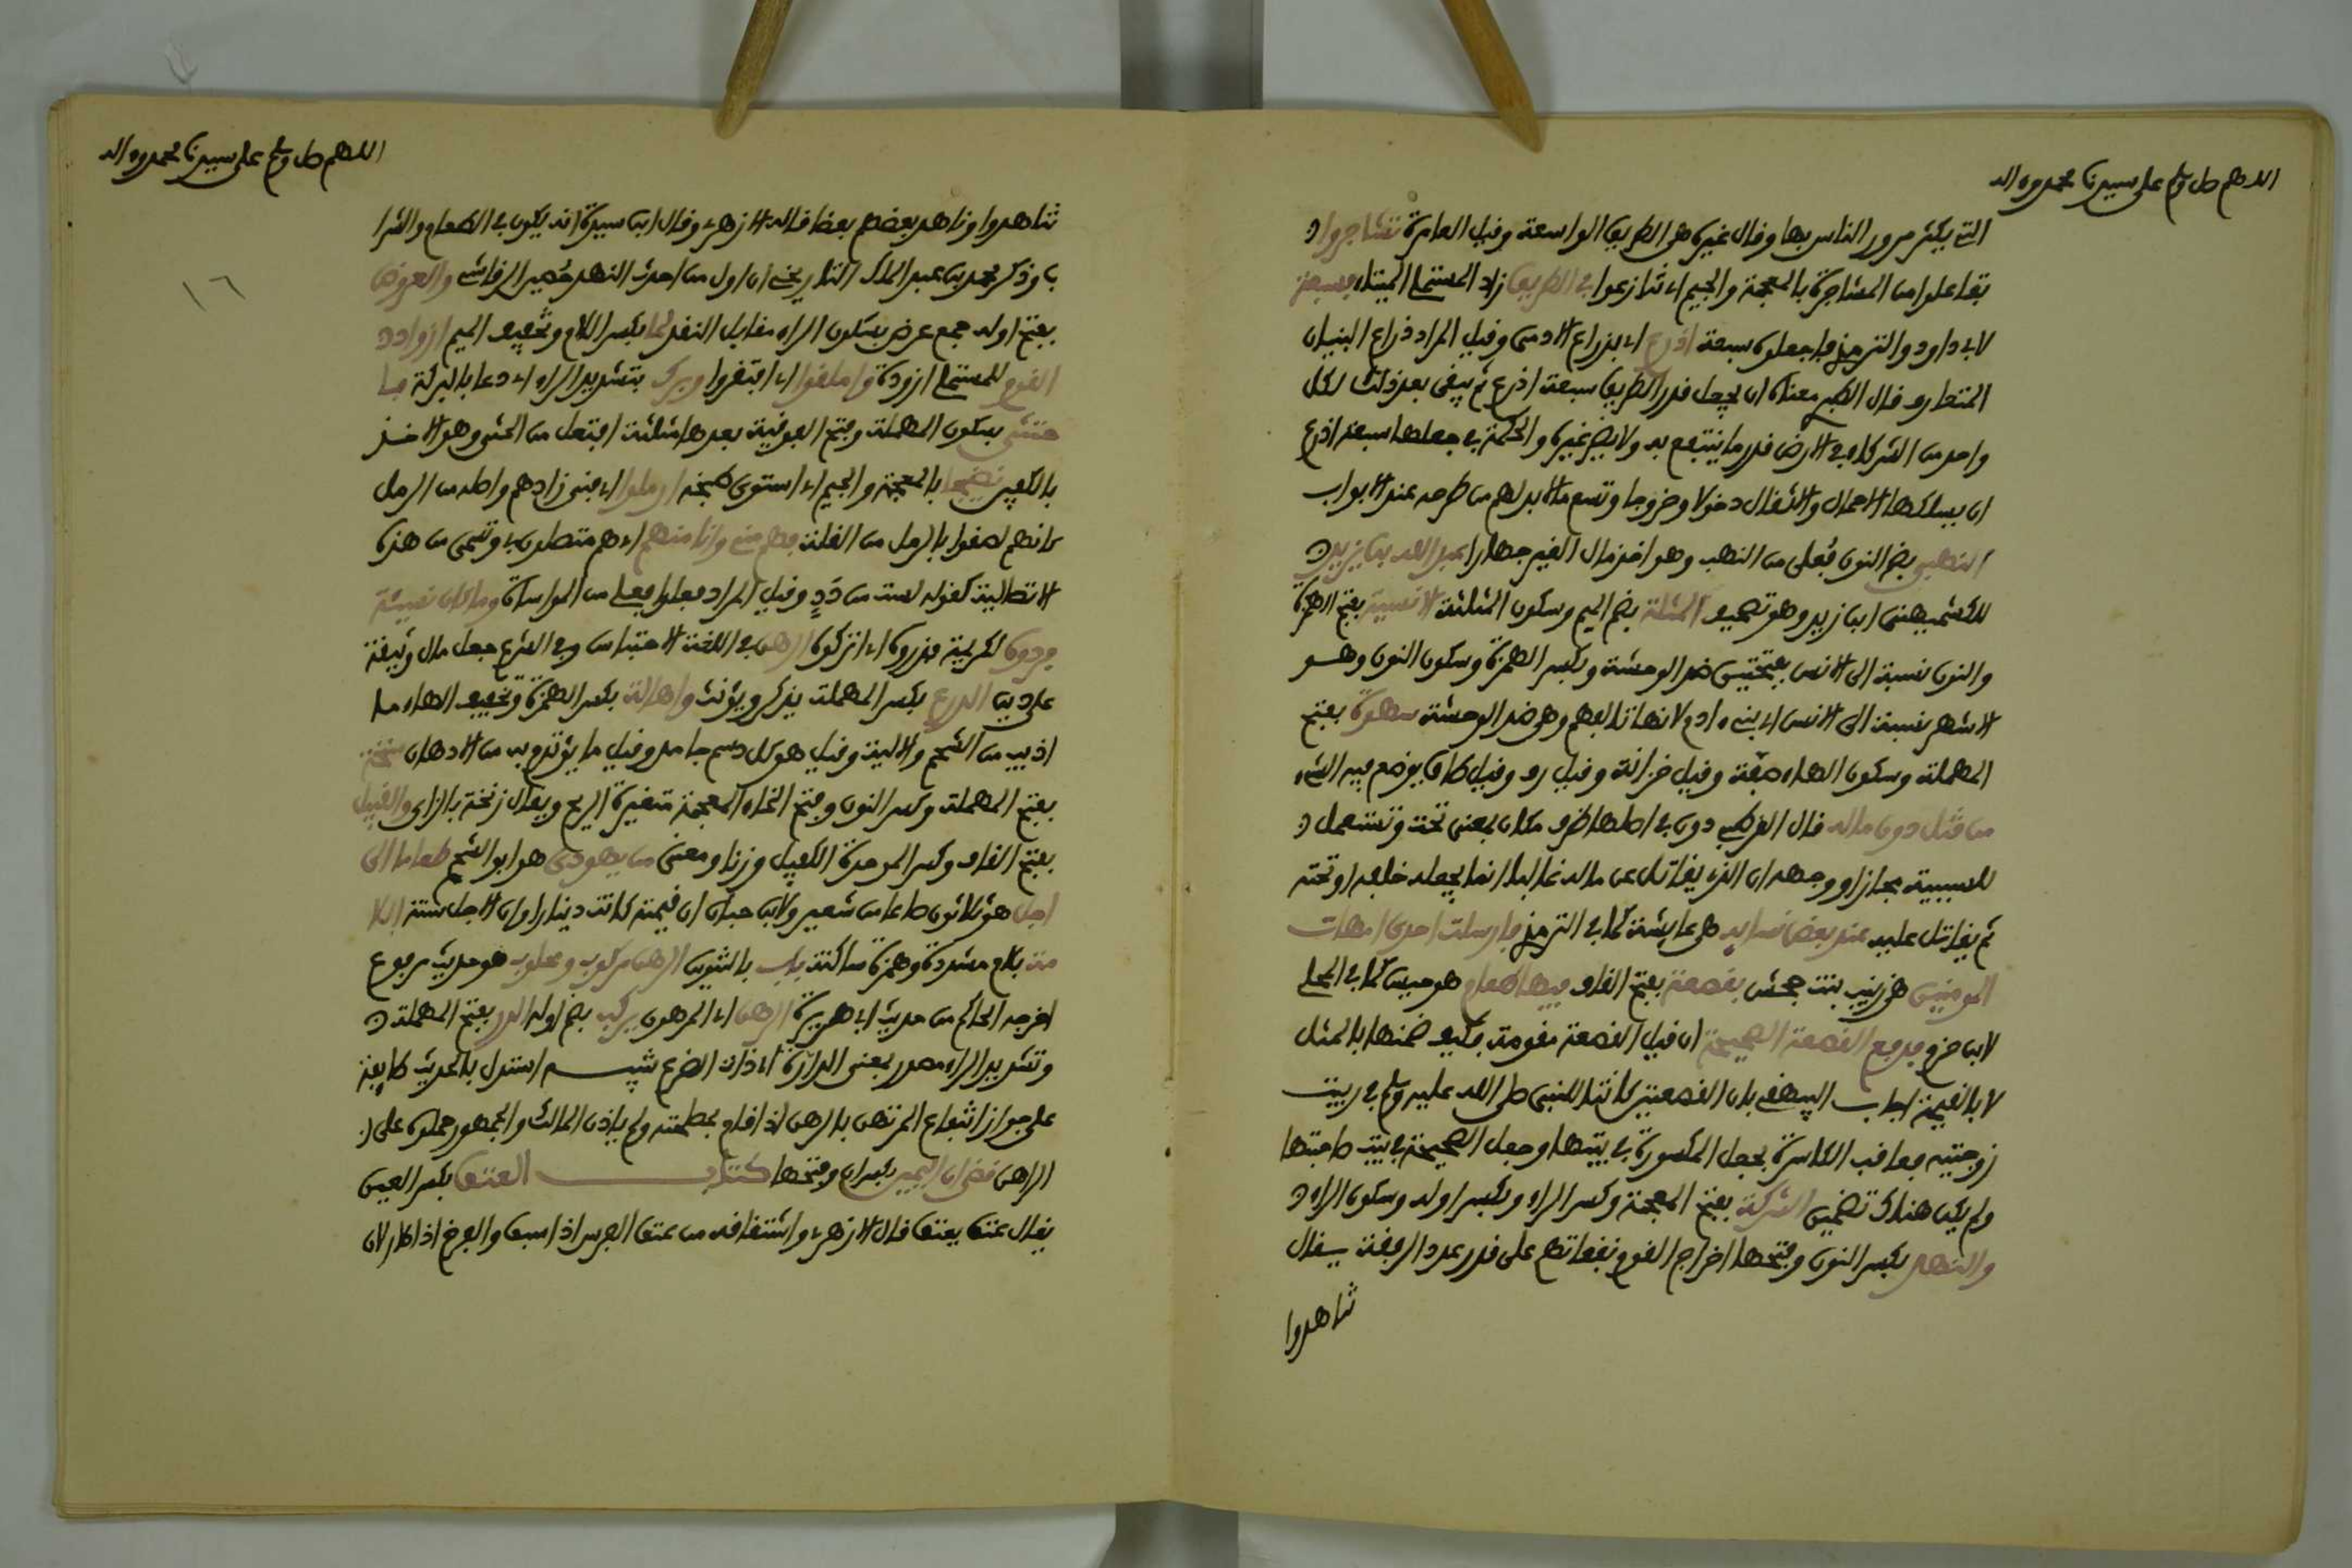 اللهم صل وسلم على سيدنا محمد وءاله
التي يكثر مرور الناس بها وقال غيره هي الطريق الواسعة وقيل العامرة تشاجروا
تفاعلوا من المشاجرة بالمعجمة والجيم اي تنازعوا في الطريق زاد المستملي الميتاء سبعة
لابي داود والترمذي فاجعلوه سبعة اذرع اي بذراع الادمي وقيل المراد ذراع البنيان
المتعارف قال الطبري معناه ان يجعل قدر الطريق سبعة اذرع ثم يبقى بعد ذلك لكل
واحد من الشركاء في الارض قدر ما ينتفع به ولا يضر غيره والحكمة في جعلها سبعة اذرع
ان يسلكها الاحمال والاثقال دخولا وخروجا وتسع ما لا بد لهم من طرحه عند الابواب
النهبى بضم النون فعلى من النهب وهو اخذ مال الغير جهارا عبد الله بن يزيد
للكشميهني ابن زيد وهو تصحيف المثلة بضم الميم وسكون المثلثة الانسية بفتح الهمزة
والنون نسبة الى الانس بفتحتين ضد الوحشة وبكسر الهمزة وسكون النون وهو
الاشهر نسبة الى الانس اي بني ءادم لانها تالفهم وهي ضد الوحشة سهوة بفتح
المهملة وسكون الهاء صفة وقيل خزانة وقيل رف وقيل طاق يوضع فيه الشيء
من قتل دون ماله قال القرطبي دون في اصلها ظرف مكان بمعنى تحت وتستعمل
للسببية مجازا ووجهه ان الذي يقاتل عن ماله غالبا انما يجعله خلفه او تحته
ثم يقاتل عليه عند بعض نسايه هي عايشة كما في الترمذي فارسلت احدى امهات
المومنين هي زينب بنت جحش بقصعة بفتح القاف فيها طعام هو حيس كما في المحلى
لابن حزم فدفع القصعة الصحيحة ان قيل القصعة مقومة فكيف ضمنها بالمثل
لا بالقيمة اجاب البيهقي بان القصعتين كانتا للنبي صلى الله عليه وسلم في بيت
زوجتيه فعاقب الكاسرة بجعل المكسورة في بيتها وجعل الصحيحة في بيت صاحبتها
ولم يكن هناك تضمين الشركة بفتح المعجمة وكسر الراء وبكسر اوله وسكون الراء
والنهد بكسر النون وفتحها اخراج القوم نفقاتهم على قدر عدد الرفقة يقال
تناهدوا
اللهم صل وسلم على سيدنا محمد وءاله
١٦
تناهدوا وناهد بعضهم بعضا قاله الازهري وقال ابن سيدة انه يكون في الطعام والشرا
ب وذكر محمد بن عبد الملك التاريخي ان اول من احدث النهد حضير الرقاشي والعروض
بفتح اوله جمع عرض بسكون الراء مقابل النقد لما بكسر اللام وتخفيف الميم ازواد
القوم للمستملي ازودة واملقوا اي افتقروا وبرك بتشديد الراء اي دعا بالبركة فا
حتثى بسكون المهملة وفتح الفوقية بعدها مثلثة افتعل من الحثي وهو الاخذ
بالكفين نضيجا بالمعجمة والجيم اي استوى طبخه ارملوا اي فني زادهم واصله من الرمل
كانهم لصقوا بالرمل من القلة فهم مني وانا منهم اي هم متصلون بي وتسمى من هذه
الاتصالية كقوله لست من دد وقيل المراد فعلوا فعلي من المواساة وما كان نسيئة
فردوه لكريمة فذروه اي اتركوه الرهن في اللغة الاحتباس وفي الشرع جعل مال وثيقة
على دين الدرع بكسر المهملة يذكر ويؤنث واهالة بكسر الهمزة وتخفيف الهاء ما
اذيب من الشحم والالية وقيل هو كل دسم جامد وقيل ما يؤتدم به من الادهان سنخة
بفتح المهملة وكسر النون وفتح الخاء المعجمة متغيرة الريح ويقال زنخة بالزاي والقبيل
بفتح القاف وكسر الموحدة الكفيل وزنا ومعنى من يهودي هو ابو الشحم طعاما الى
اجل هو ثلاثون صاعا من شعير ولابن حبان ان قيمته كانت دينارا وان الاجل سنة اللا
مة بلام مشددة وهمزة ساكنة باب بالتنوين الرهن مركوب ومحلوب هو حديث مرفوع
اخرجه الحاكم من حديث ابي هريرة الرهن اي المرهون يركب بضم اوله الدر بفتح المهملة
وتشديد الراء مصدر بمعنى الدارة اي ذات الضرع تنبيه استدل بالحديث طايفة
على جواز انتفاع المرتهن بالرهن اذا قام بمصلحته ولم ياذن المالك والجمهور حملوه على
الراهن قضى ان اليمين بكسر ان وفتحها كتاب العتق بكسر العين
يقال عتق يعتق قال الازهري واشتقاقه من عتق الفرس اذا سبق والفرخ اذا طار لان